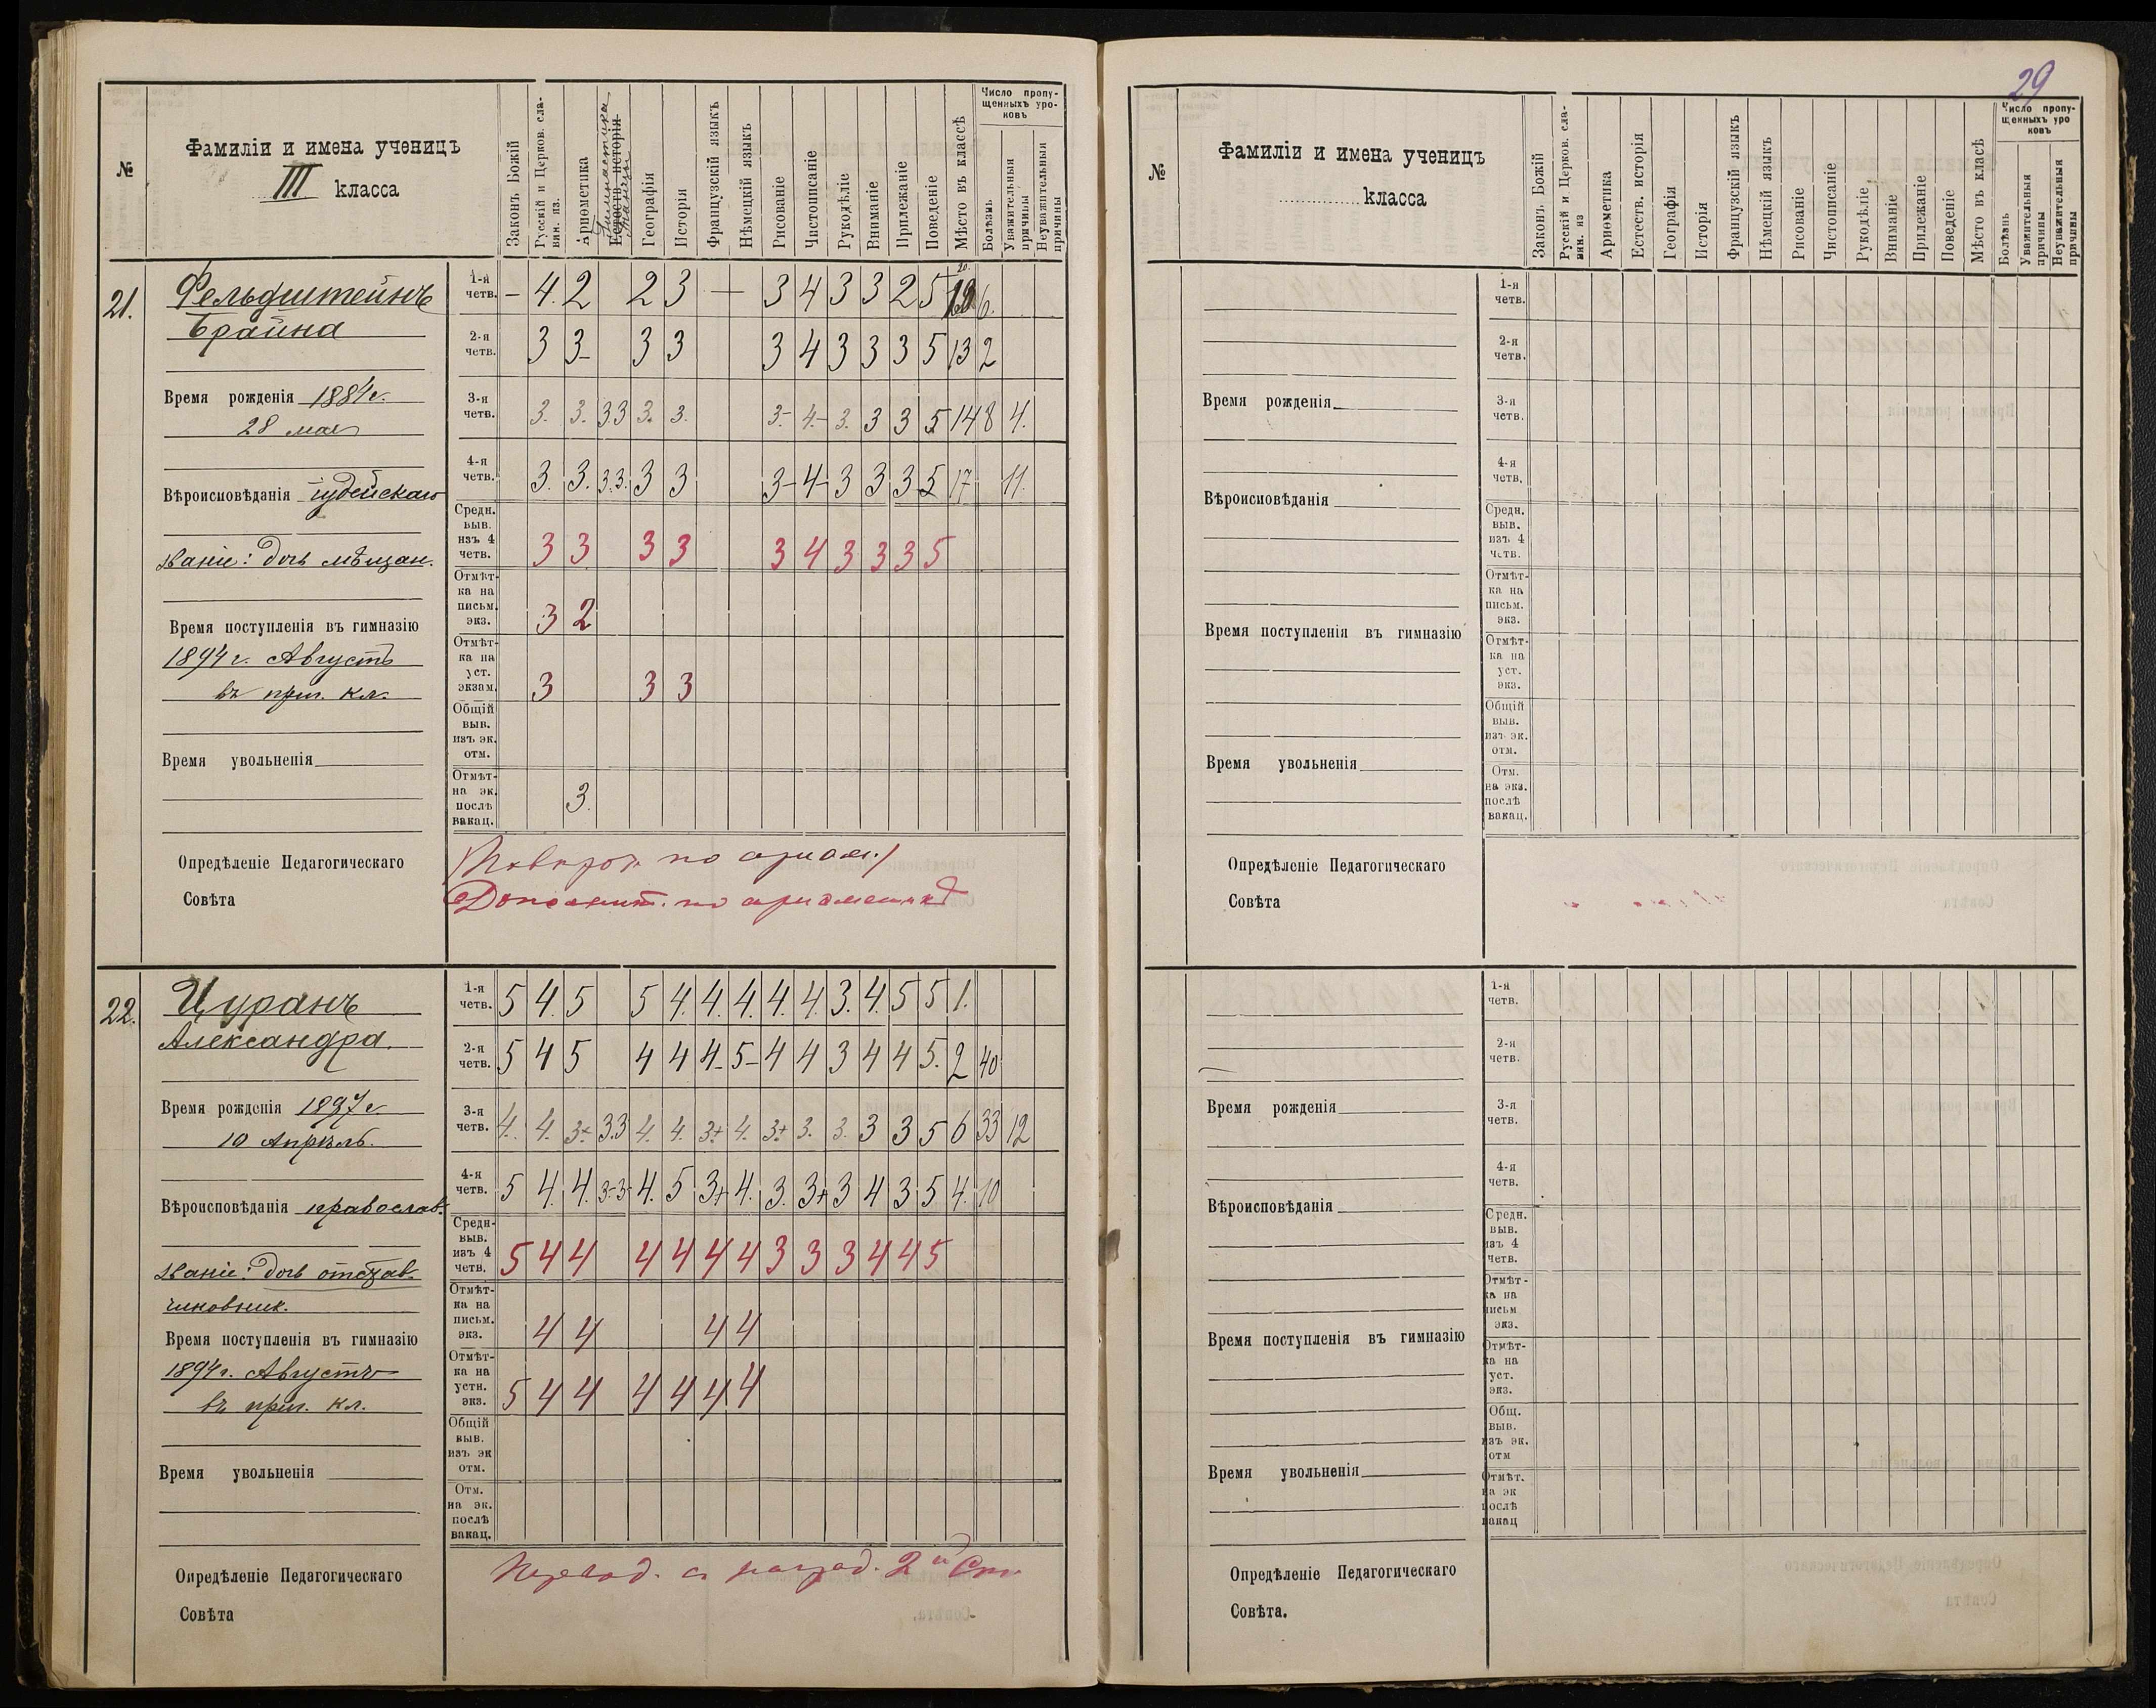 №
Фамиліи и имена ученицъ
III класса
Законъ Божій
Русскій и Церков. сла-
вян. яз.
Ариѳметика
Гимнастика
Естеств. исторія
Танцы
Географія
Исторія
Французскій языкъ
Нѣмецкій языкъ
Рисованіе
Чистописаніе
Рукодѣліе
Вниманіе
Прилежаніе
Поведеніе
Мѣсто въ классѣ
Число пропу-
щенныхъ уро-
ковъ
Болѣзнь
Уважительныя
причины
Неуважительныя
причины
21.
Фельдштейнъ
Брайна
Время рожденія 1884 г.
28 мая
Вѣроисповѣданія іудейскаго
Званіе: дочь мѣщан.
Время поступленія въ гимназію
1894 г. Августъ
въ приг. кл.
Время увольненія
1-я четв. — 4. 2 2 3 — 3 4 3 3 2 5 20. 6.
2-я четв. 3 3- 3 3 3 4 3 3 3 5 13 2
3-я четв. 3. 3. 3 3 3. 3. 3- 4- 3. 3 3 5 14 8 4.
4-я четв. 3. 3. 3. 3. 3 3 3- 4- 3 3 3 5 17 11.
Средн. выв. изъ 4 четв. 3 3 3 3 3 4 3 3 3 5
Отмѣт-
ка на письм. экз. 3 2
Отмѣт-
ка на уст. экзам. 3 3 3
Общій выв. изъ эк. отм.
Отмѣт-
на эк. послѣ вакац. 3.
Опредѣленіе Педагогическаго
Совѣта
по ариѳм.
Дополнит. по ариѳметикѣ
22.
Цуранъ
Александра.
Время рожденія
10 Апрѣль.
Вѣроисповѣданія православ.
Званіе: дочь отстав.
чиновник.
Время поступленія въ гимназію
1894 г. Августъ
въ приг. кл.
Время увольненія
1-я четв. 5 4. 5 5 4. 4. 4. 4. 4. 3. 4. 5 5 1.
2-я четв. 5 4 5 4 4 4- 5- 4 4 3 4 4 5. 2 40
3-я четв. 4. 4. 3+ 3 3 4. 4. 3+ 4. 3+ 3. 3. 3 3 5 6 33 12
4-я четв. 5 4. 4. 3-3- 4. 5 3+ 4. 3. 3+ 3 4 3 5 4. 10
Средн-
выв. изъ 4 четв. 5 4 4 4 4 4 4 3 3 3 4 4 5
Отмѣт-
ка на письм. экз. 4 4 4 4
Отмѣт-
ка на устн. экз. 5 4 4 4 4 4 4
Общій выв. изъ эк отм.
Отм. на эк. послѣ вакац.
Опредѣленіе Педагогическаго
Совѣта
Перевод. съ наград. 2й Ст.
29
№
Фамиліи и имена ученицъ
класса
Законъ Божій
Русскій и Церков. сла-
вян. яз
Ариѳметика
Естеств. исторія
Географія
Исторія
Французскій языкъ
Нѣмецкій языкъ
Рисованіе
Чистописаніе
Рукодѣліе
Вниманіе
Прилежаніе
Поведеніе
Мѣсто въ класѣ
Число пропу-
щенныхъ уро
ковъ
Болѣзнь
Уважительныя
причины
Неуважительныя
причины
Время рожденія
Вѣроисповѣданія
Время поступленія въ гимназію
Время увольненія
1-я четв.
2-я четв.
3-я четв.
4-я четв.
Средн. выв. изъ 4 четв.
Отмѣт-
ка на письм. экз.
Отмѣт-
ка на уст. экз.
Общій выв. изъ эк. отм.
Отм. на экз. послѣ вакац.
Опредѣленіе Педагогическаго
Совѣта
Время рожденія
Вѣроисповѣданія
Время поступленія въ гимназію
Время увольненія
1-я четв.
2-я четв.
3-я четв.
4-я четв.
Средн. выв. изъ 4 четв.
Отмѣт-
ка на письм экз.
Отмѣт-
ка на уст. экз.
Общ. выв. изъ эк. отм
Отмѣт. на эк послѣ вакац
Опредѣленіе Педагогическаго
Совѣта.